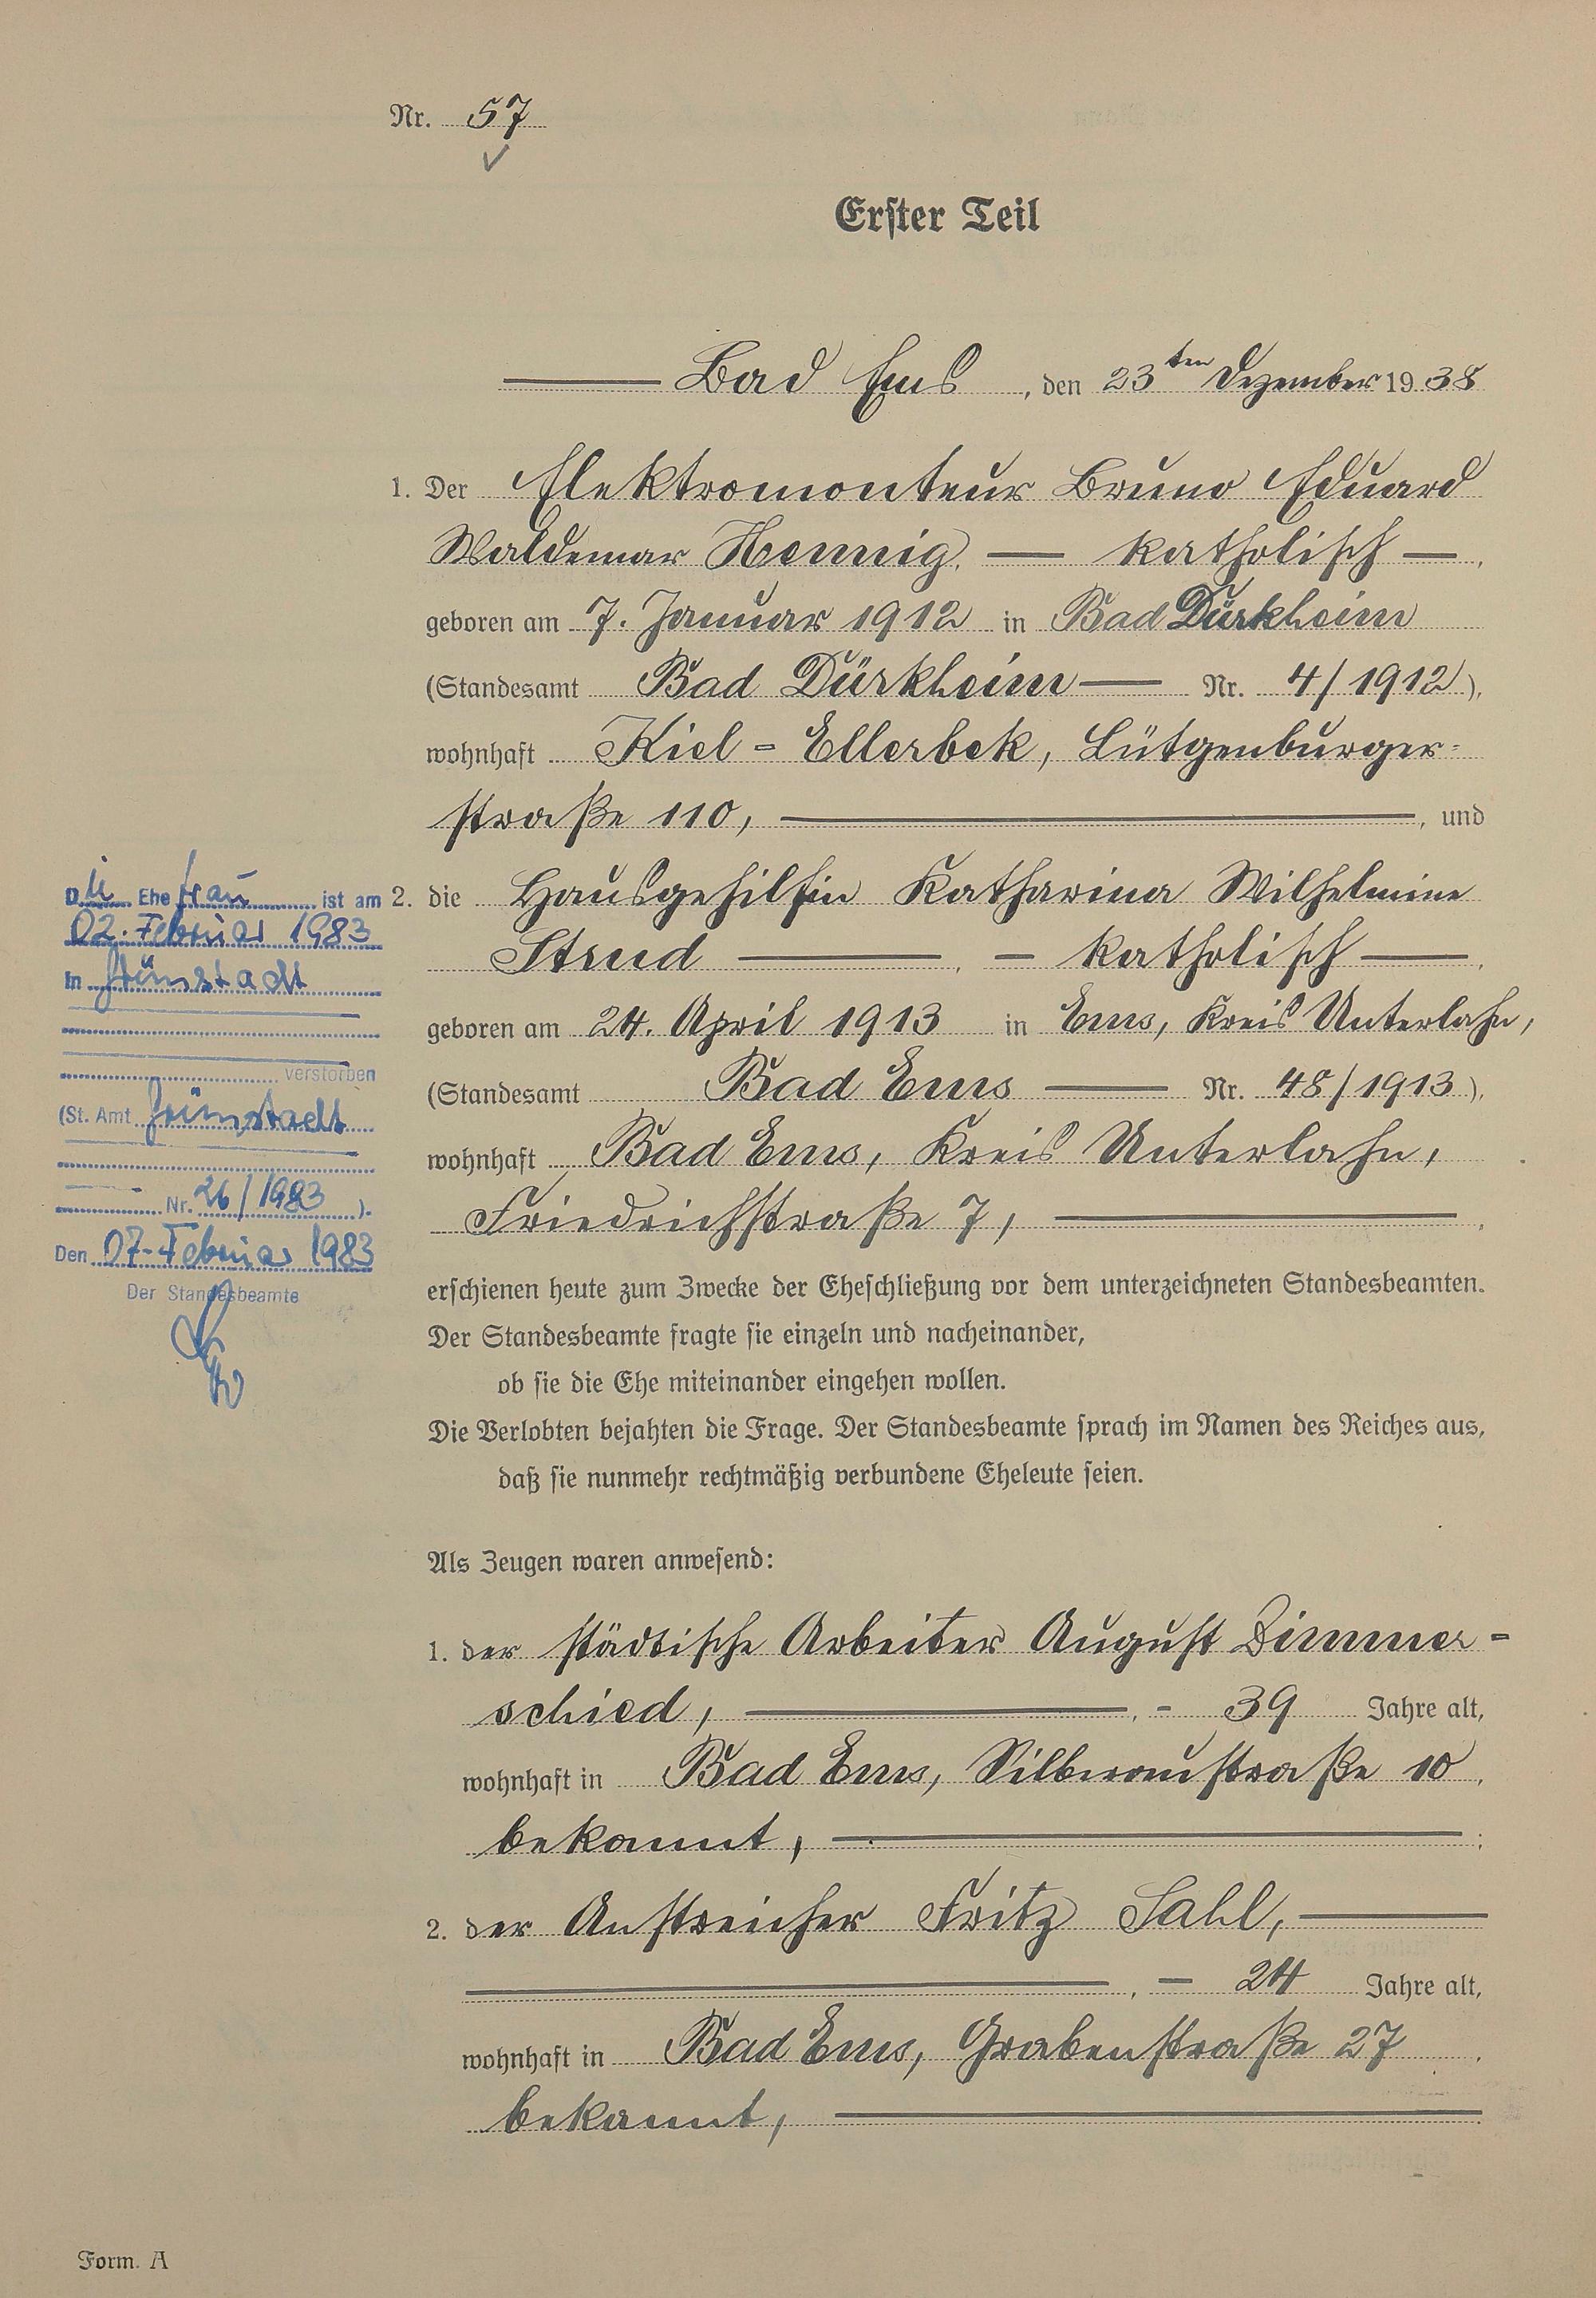 Nr. 57
Erster Teil
Bad Ems, den 23ten Dezember 1938
1. Der Elektromonteur Bruno Eduard
Waldemar Hennig, — katholisch —,
geboren am 7. Januar 1912 in Bad Dürkheim
(Standesamt Bad Dürkheim — Nr. 4/1912),
wohnhaft Kiel-Ellerbek, Lütgenburger-
straße 110, —, und
2. die Hausgehilfin Katharina Wilhelmine
Strud —, — katholisch —,
geboren am 24. April 1913 in Ems, Kreis Unterlahn,
(Standesamt Bad Ems — Nr. 48/1913),
wohnhaft Bad Ems, Kreis Unterlahn,
Friedrichstraße 7, —,
erschienen heute zum Zwecke der Eheschließung vor dem unterzeichneten Standesbeamten.
Der Standesbeamte fragte sie einzeln und nacheinander,
ob sie die Ehe miteinander eingehen wollen.
Die Verlobten bejahten die Frage. Der Standesbeamte sprach im Namen des Reiches aus,
daß sie nunmehr rechtmäßig verbundene Eheleute seien.
Als Zeugen waren anwesend:
1. der städtische Arbeiter August Dimmer-
schied, —, - 39 Jahre alt,
wohnhaft in Bad Ems, Silberaustraße 10,
bekannt, —;
2. der Anstreicher Fritz Sahl, —
—, — 24 Jahre alt,
wohnhaft in Bad Ems, Grabenstraße 27.
bekannt, —
Die Ehefrau ist am
02. Februar 1983
in Grünstadt
verstorben
(St. Amt Grünstadt
Nr. 26/1983).
Den 07. Februar 1983
Der Standesbeamte
Form. A